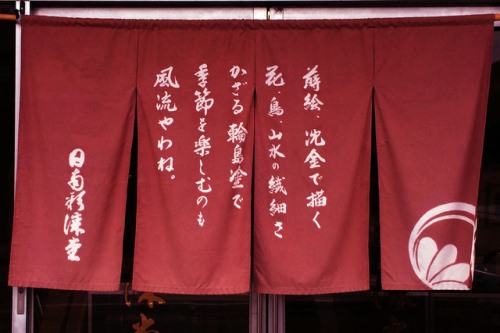 蒔絵、沈金で描く
花、鳥、山水の繊細さ
かざる輪島塗で
季節を楽しむのも
風流やわね。
日南彩漆堂